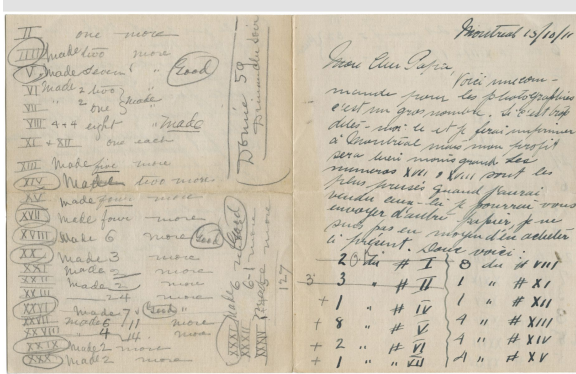 II one more
IIII made two more
V. made seven " " Good
VI made 2 two
VII " 2 one made
VIII 4+4 eight " made
XI + XII one each
XIII Made five more
XIV Made two more
XV made four more
XVII make four more
XVIII Make 6 more Good
XX Made 3 more
XXI made 2 more
XXII made 2 more
XVIII 24 more
XXVI made 7 " Good "
XXVII made 6/11 more
XXVIII " 4/14 more
XXIX Made 2 more
XXX Made 2 more
Donnie 59
Dimanche soir
XXXI Make 6 more Good
XXXII 6-1 more
XXXIV
127
Montreal 13/10/11
Mon Cher Papa,
Voici une com-
mande pour les photographies
c'est un gros nombre. Si c'est trop
dites-moi le et je ferai imprimer
à Montréal mais mon profit
sera moins grand. Les
numeros XVII & XVIII sont les
plus pressés. Quand j'aurai
vendu ceux-là je pourrai vous
envoyer d'autre papier, je ne
suis pas en moyen d'en acheter
à présent. Donc voici:
20 du # I 8 du # VIII
3 3 " # II 1 " # XI
+ 1 " # IV 1 " # XII
+ 8 " # V 4 " # XIII
+ 2 " # VI 4 " # XIV
+ 1 " # VII 4 " # XV